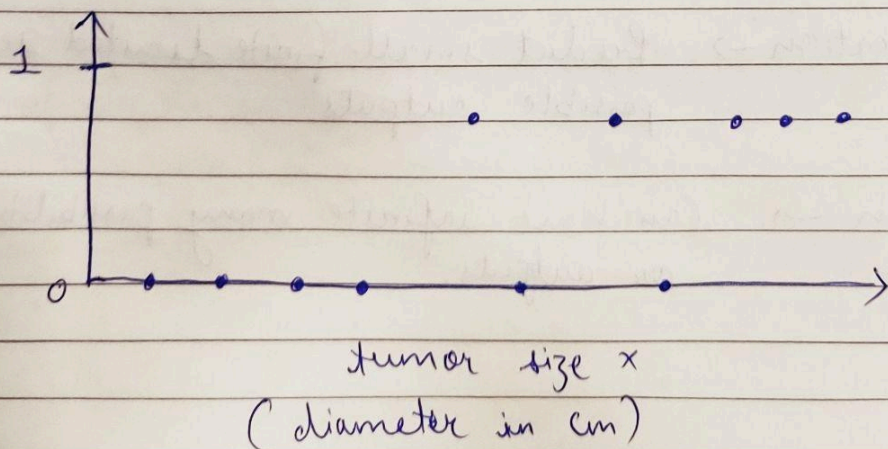 1
0
tumor size x
(diameter in cm)